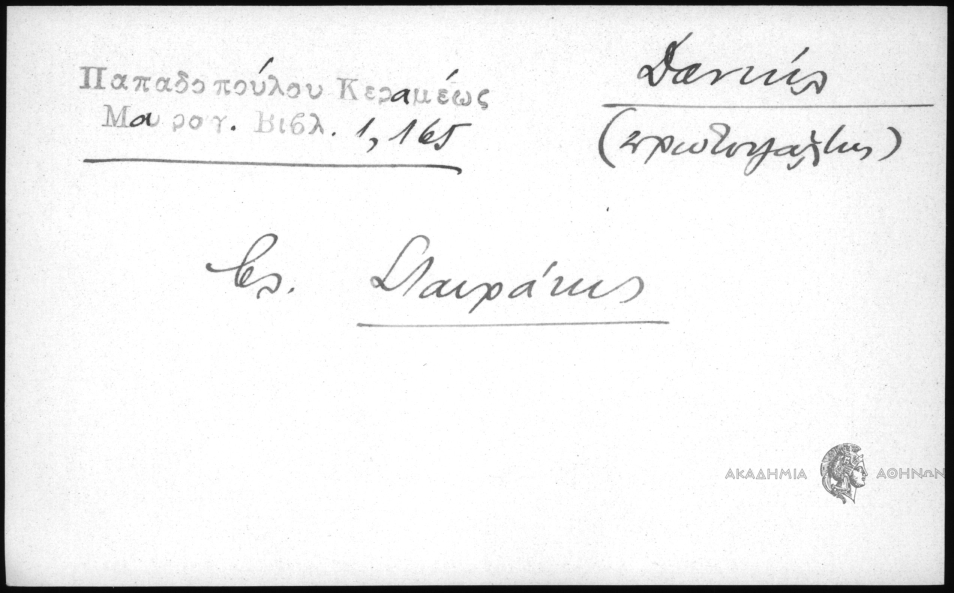 Παπαδοπούλου Κεραμέως
Μαυρογ. Βιβλ. 1, 165
(πρωτοψάλτης)
βλ. Σταυράκης
ΑΚΑΔΗΜΙΑ ΑΘΗΝΩΝ